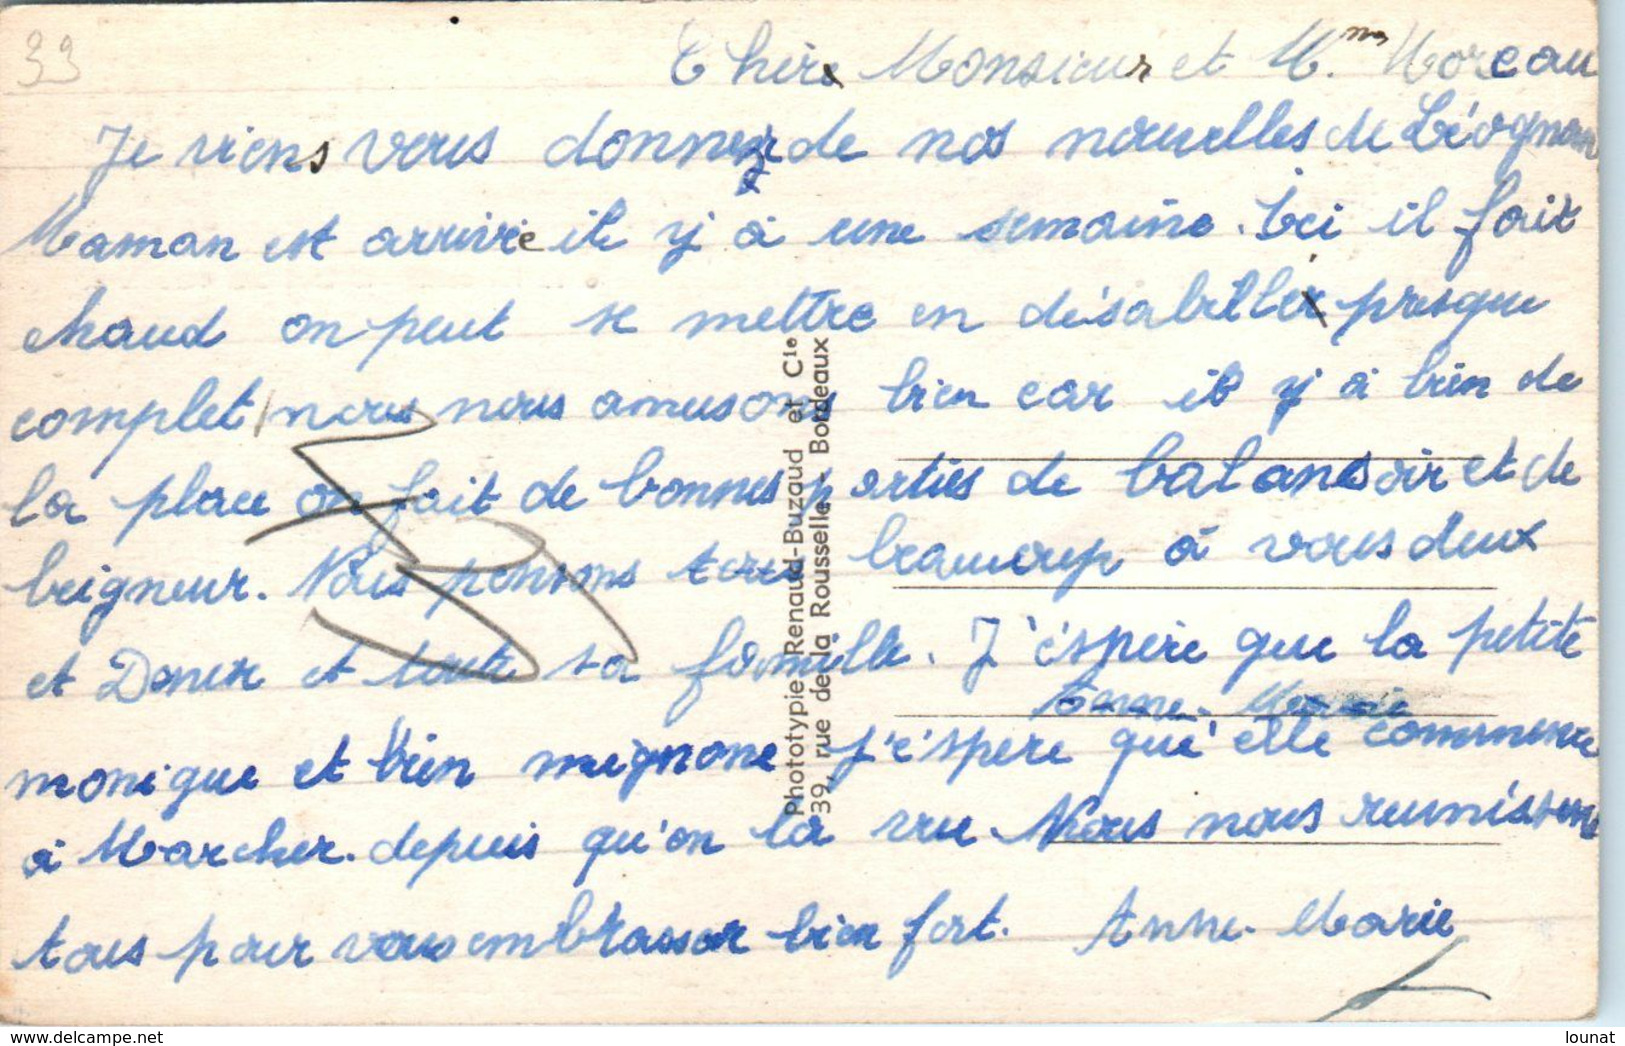 33
Chère Monsieur et Mme Moreau
Je viens vous donner de nos nouvelles de Léognan
Maman est arrivée il y à une semaine. Ici il fait
chaud on peut se mettre en désabillér presque
complet nous nous amusons bien car il y à bien de
la place on fait de bonnes parties de balansoir et de
beigneur. Nous pensons tous beaucoup à vous deux
et Denise et toute sa famille. J'éspère que la petite
Anne-Marie
monique et bien mignone j'éspere qu'elle commence
à Marcher. depuis qu'on la vu. Nous nous reunissons
tous pour vous embrasser bien fort. Anne-Marie
Phototypie Renaud-Buzaud et Cie
39, rue de la Rousselle - Bordeaux
delcampe.net
lounat